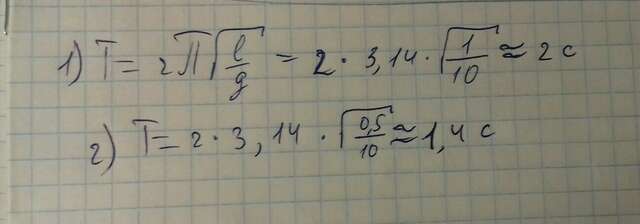 1) T = 2π√(l/g) = 2 · 3,14 · √(1/10) ≈ 2 с
2) T = 2 · 3,14 · √(0,5/10) ≈ 1,4 с